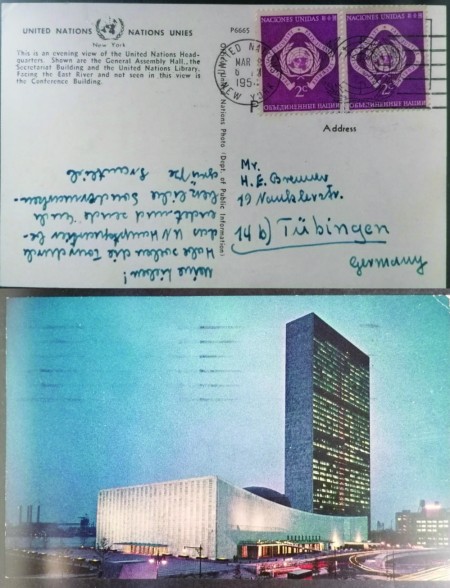 UNITED NATIONS NATIONS UNIES
New York
This is an evening view of the United Nations Head-
quarters. Shown are the General Assembly Hall, the
Secretariat Building and the United Nations Library.
Facing the East River and not seen in this view is
the Conference Building.
P6665
United Nations Photo (Dept. of Public Information)
NACIONES UNIDAS
2c
ОБЪЕДИНЕННЫЕ НАЦИИ
NACIONES UNIDAS
2c
ОБЪЕДИНЕННЫЕ НАЦИИ
UNITED
MAR
195
NEW
Address
Mr.
H. E. Brenner
19
14 b) Tübingen
Germany
Meine Lieben!
Habe soeben die Tour durch
das UN Hauptquartier be-
endet und sende Euch
herzliche Sondermarken-
grüße